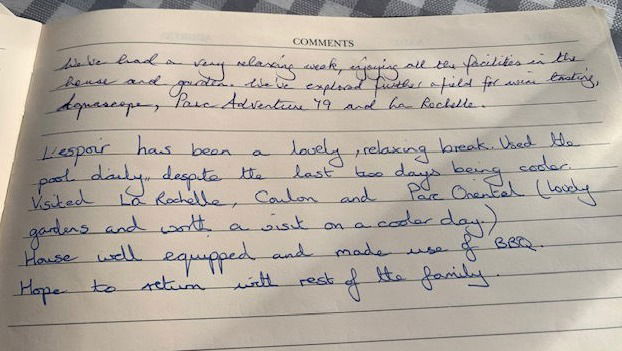 COMMENTS
We've had a very relaxing week, enjoying all the facilities in the
house and garden. We've explored further afield for wine tasting,
Aquascope, Parc Adventure 79 and La Rochelle.
L'espoir has been a lovely, relaxing break. Used the
pool daily, despite the last two days being cooler.
Visited La Rochelle, Coulon and Parc Oriental (lovely
gardens and worth a visit on a cooler day.)
House well equipped and made use of BBQ.
Hope to return with rest of the family.